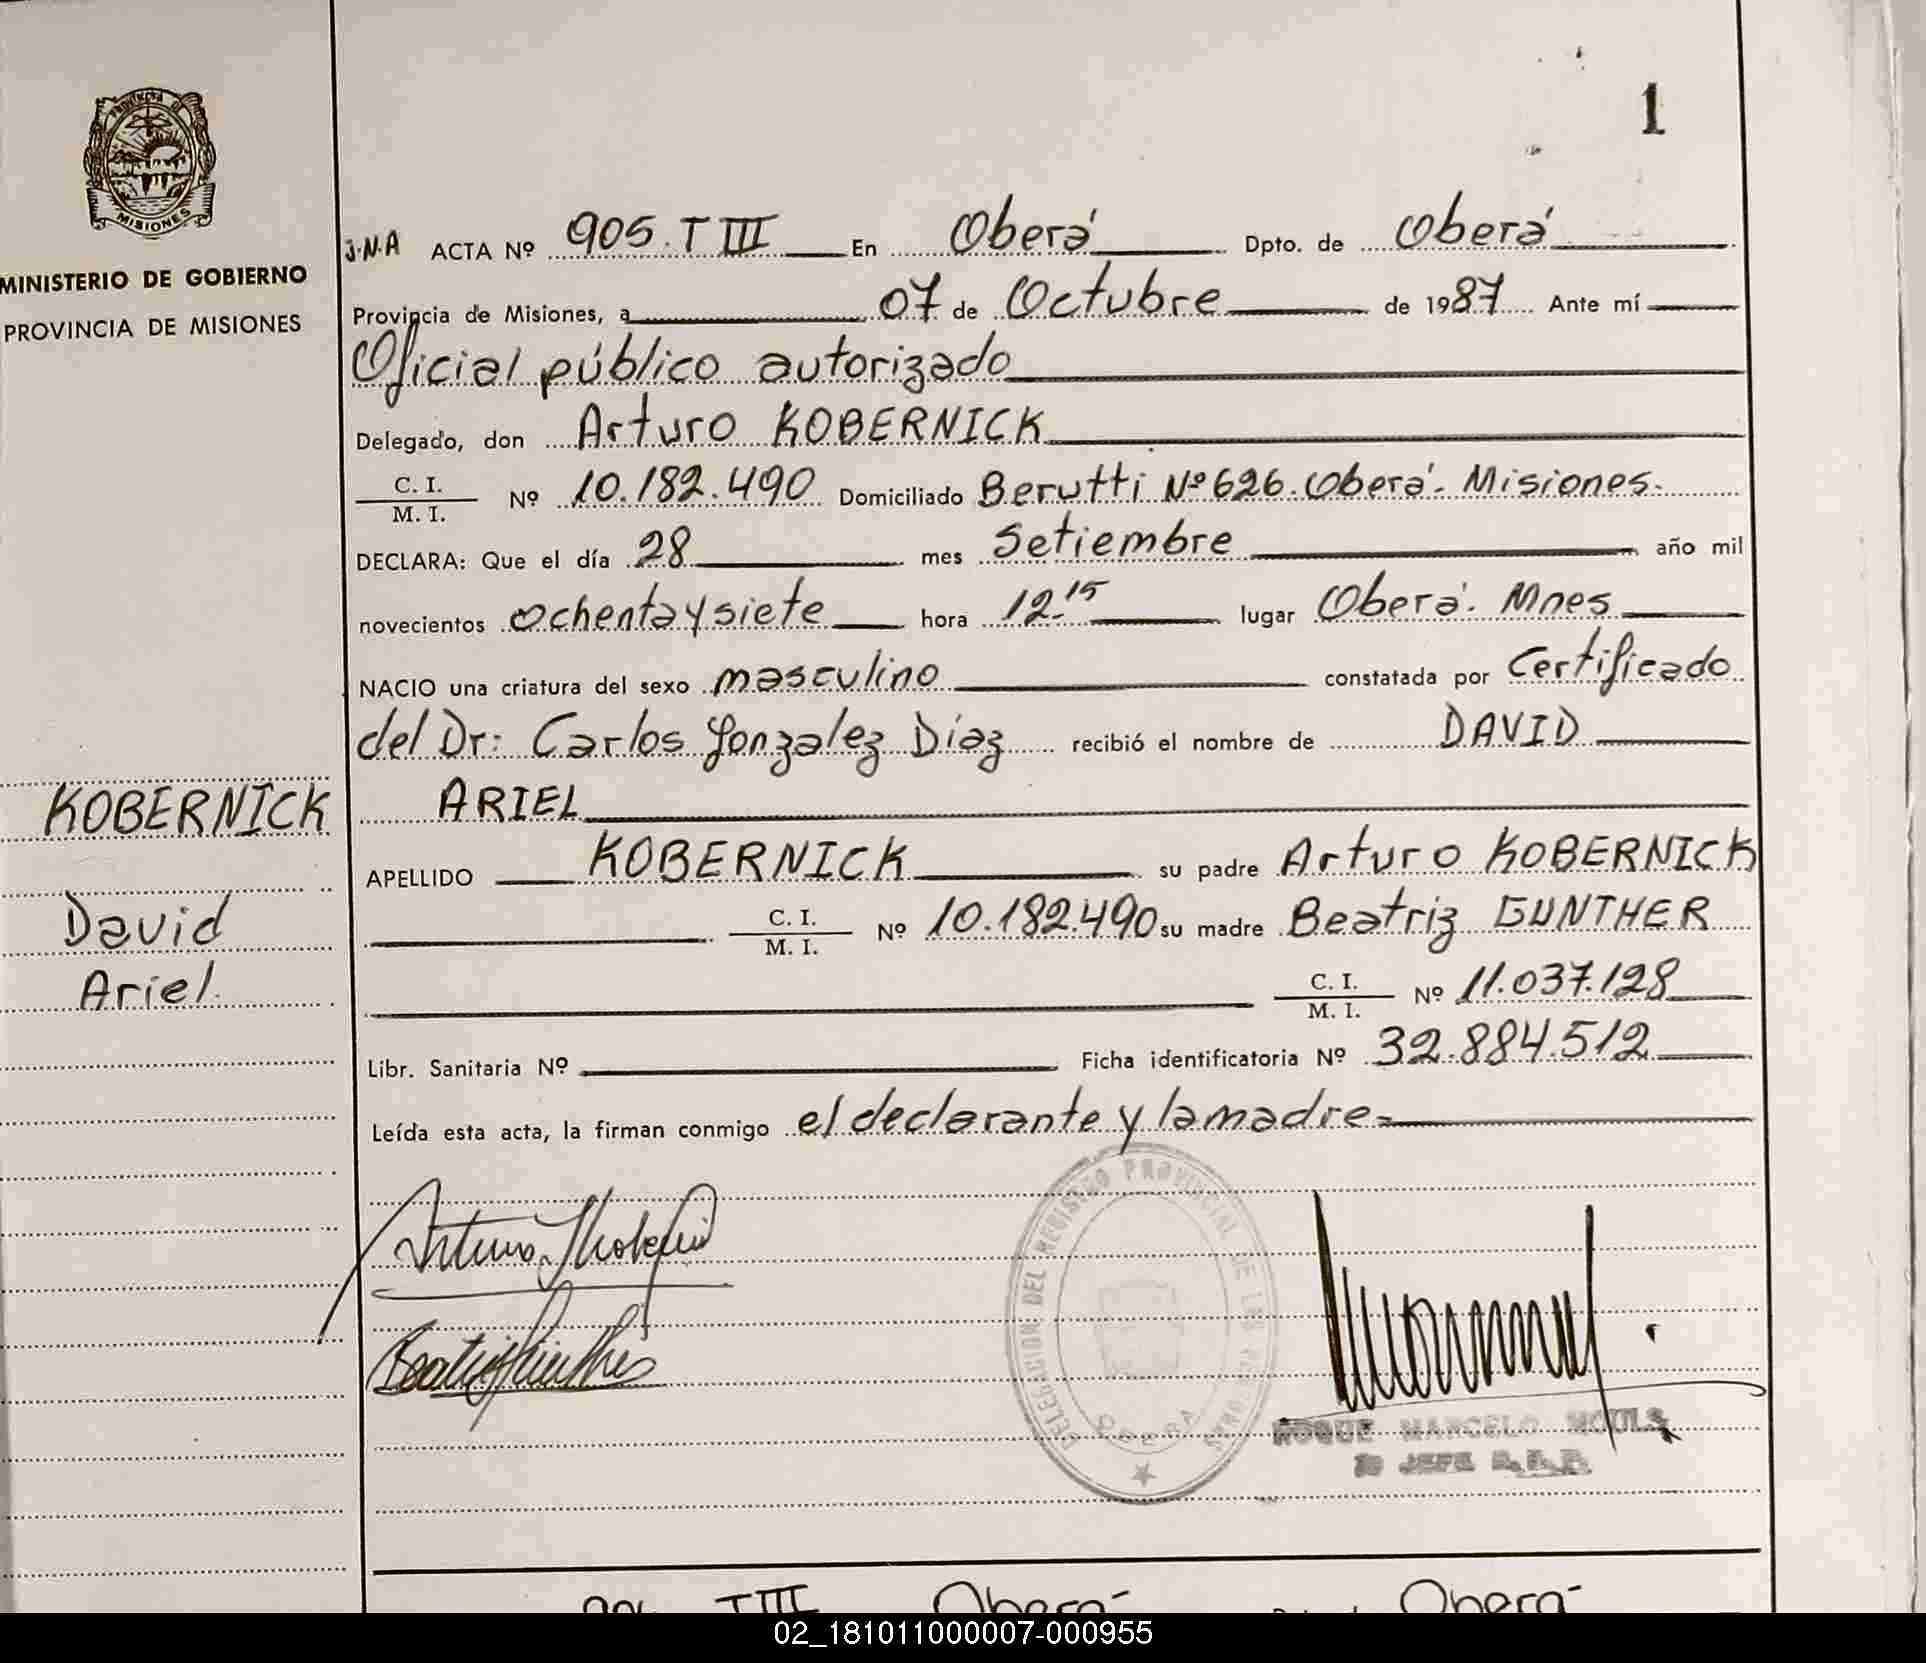 PROVINCIA DE
MISIONES
MINISTERIO DE GOBIERNO
PROVINCIA DE MISIONES
KOBERNICK
David
Ariel.
1
J.N.A ACTA Nº 905. T III En Oberá Dpto. de Oberá
Provincia de Misiones, a 07 de Octubre de 1987 Ante mí
Oficial público autorizado
Delegado, don Arturo KOBERNICK
C. I.
M. I.
Nº 10.182.490 Domiciliado Berutti Nº 626. Oberá. Misiones.
DECLARA: Que el día 28 mes Setiembre año mil
novecientos ochenta y siete hora 12.15 lugar Oberá. Mnes
NACIO una criatura del sexo masculino constatada por Certificado
del Dr: Carlos Gonzalez Díaz recibió el nombre de DAVID
ARIEL
APELLIDO KOBERNICK su padre Arturo KOBERNICK
C. I.
M. I.
Nº 10.182.490 su madre Beatriz GUNTHER
C. I.
M. I.
Nº 11.037.128
Libr. Sanitaria Nº Ficha identificatoria Nº 32.884.512
Leída esta acta, la firman conmigo el declarante y la madre=
DELEGACION DEL REGISTRO PROVINCIAL DE LAS PERSONAS
OBERA
ROQUE MARCELO
JEFE
TIII Oberá Oberá
02_181011000007-000955